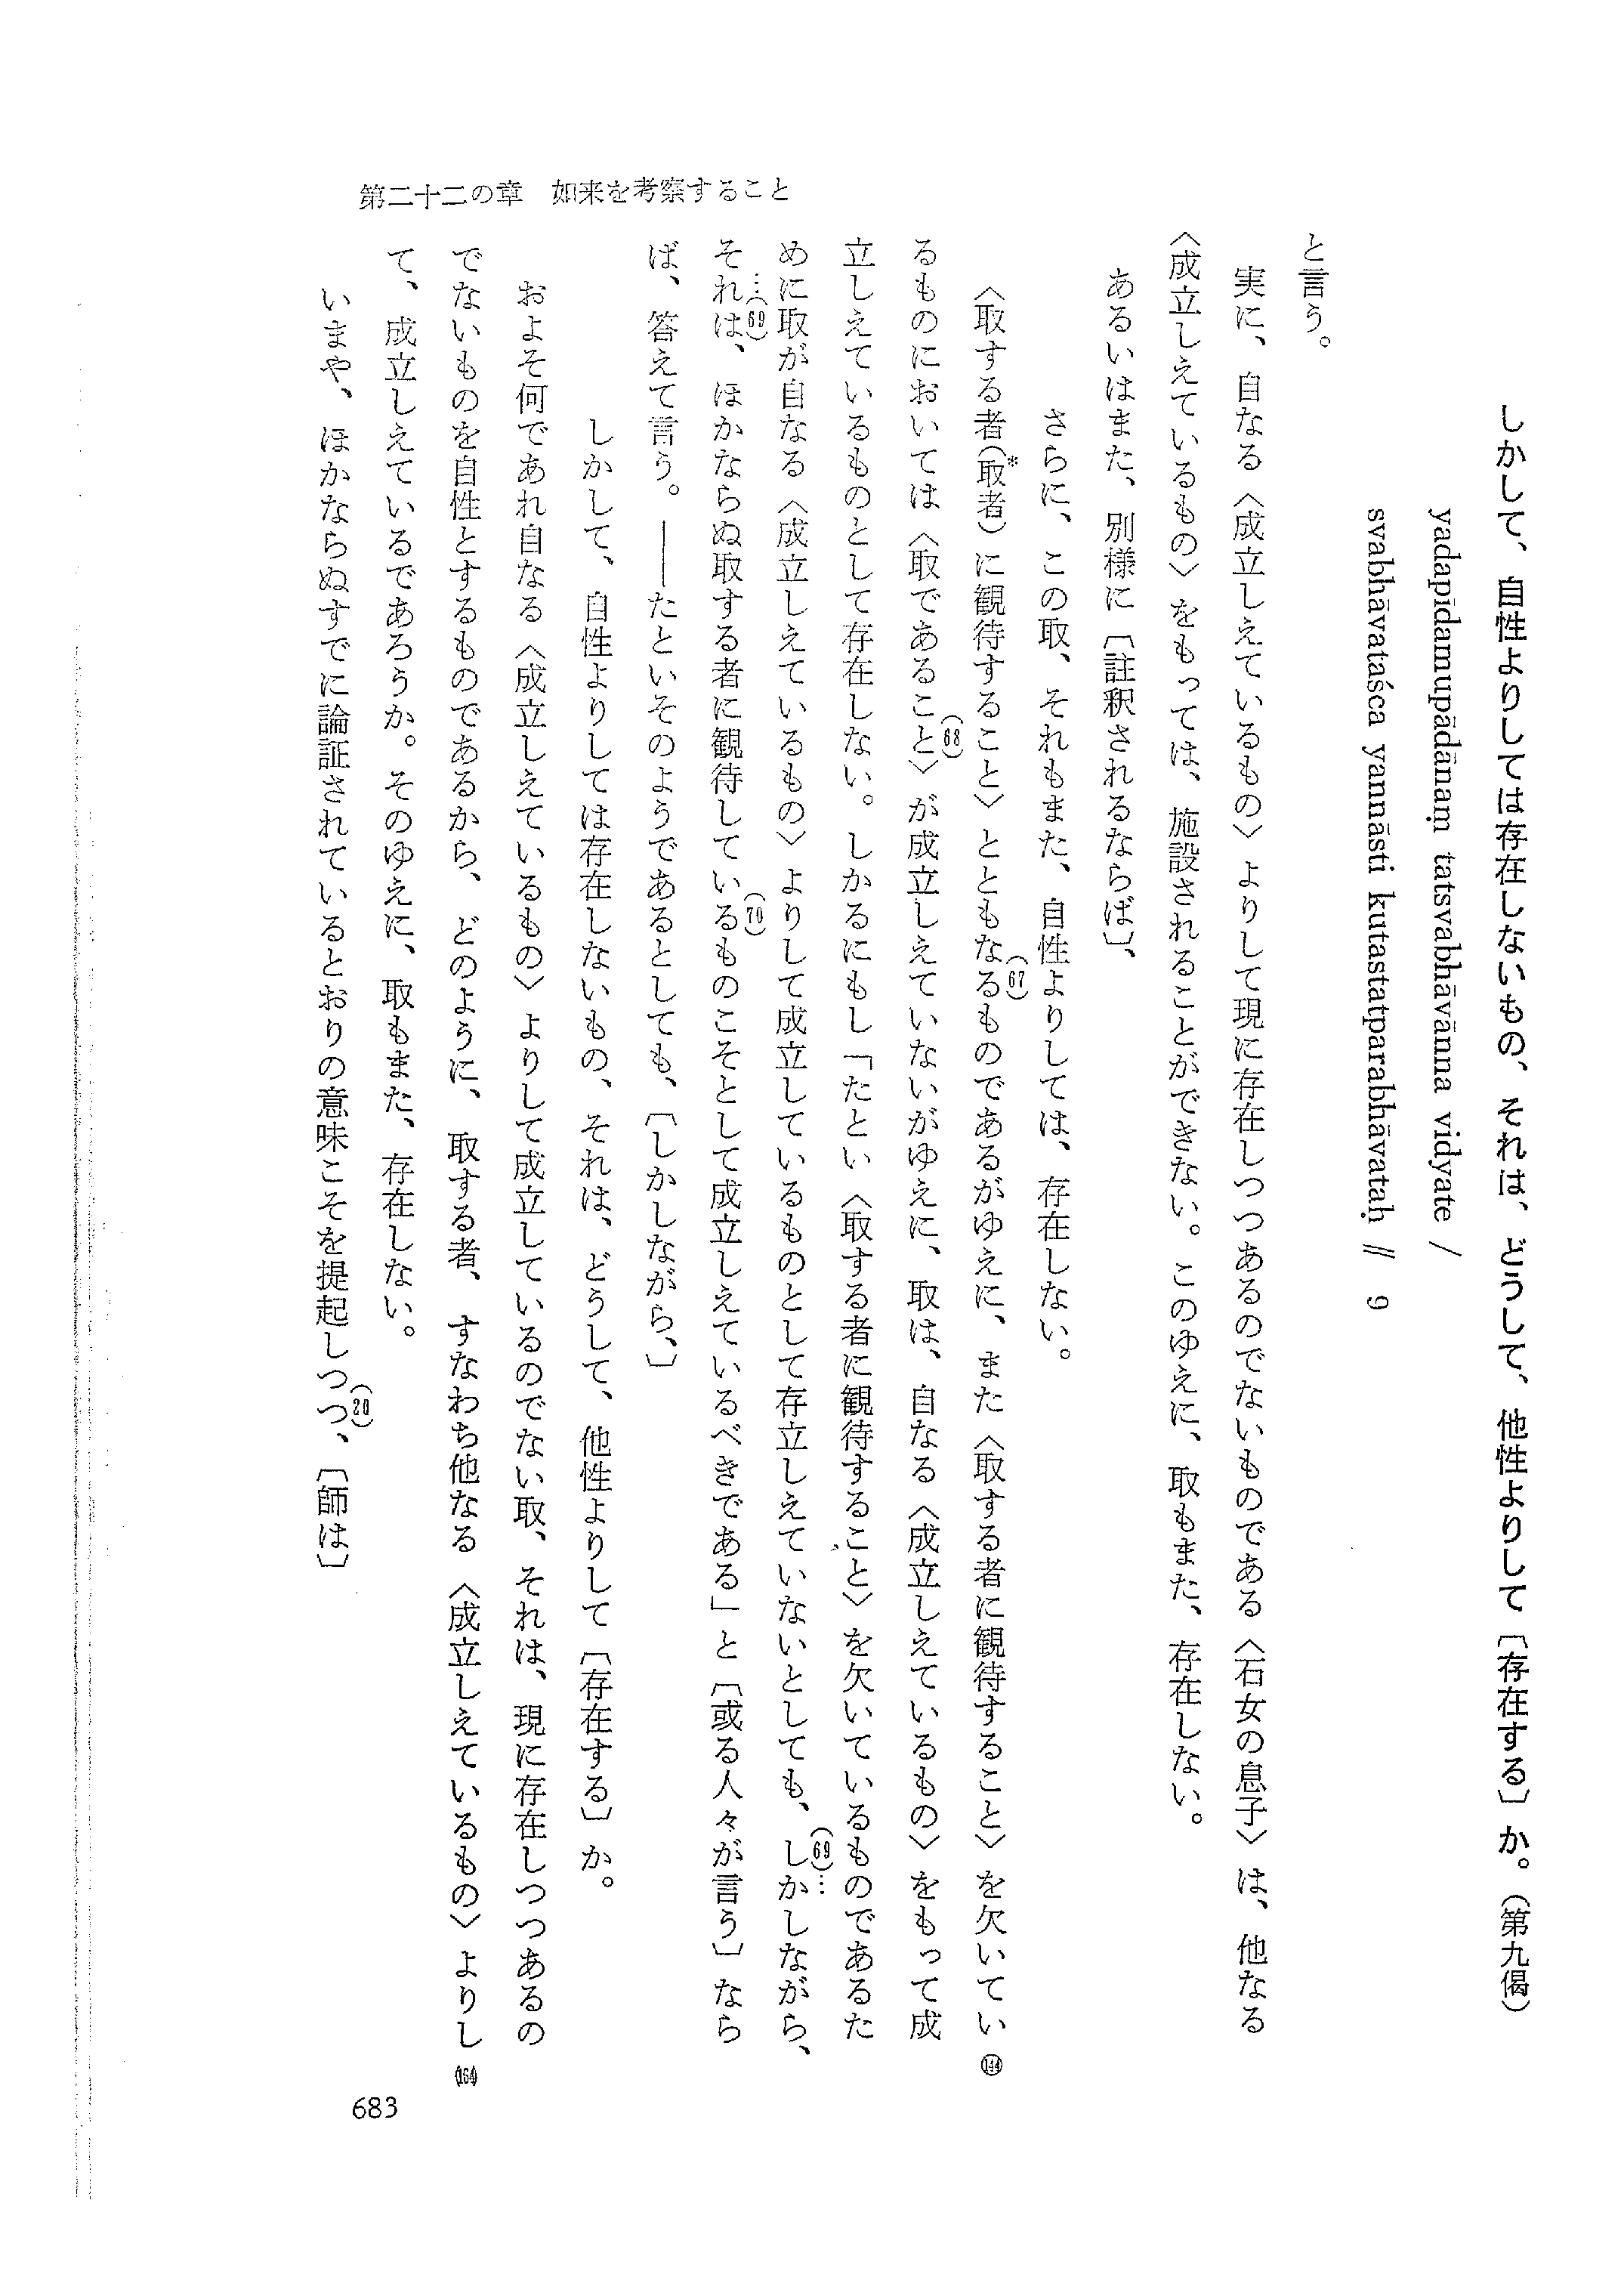 しかして、自性よりしては存在しないもの、それは、どうして、他性よりして〔存在する〕か。（第九偈）
yadapīdamupādānaṃ tatsvabhāvānna vidyate /
svabhāvataśca yannāsti kutastatparabhāvataḥ // 9
と言う。
実に、自なる〈成立しえているもの〉よりして現に存在しつつあるのでないものである〈石女の息子〉は、他なる
〈成立しえているもの〉をもっては、施設されることができない。このゆえに、取もまた、存在しない。
あるいはまた、別様に〔註釈されるならば〕、
さらに、この取、それもまた、自性よりしては、存在しない。
〈取する者（取者）*に観待すること〉とともなる(67)ものであるがゆえに、また〈取する者に観待すること〉を欠いてい ⑭⑭
るものにおいては〈取であること(68)〉が成立しえていないがゆえに、取は、自なる〈成立しえているもの〉をもって成
立しえているものとして存在しない。しかるにもし「たとい〈取する者に観待すること〉を欠いているものであるた
めに取が自なる〈成立しえているもの〉よりして成立しているものとして存立しえていないとしても、(69)…しかしながら、
それは…(69)、ほかならぬ取する者に観待している(70)ものこそとして成立しえているべきである」と〔或る人々が言う〕なら
ば、答えて言う。――たといそのようであるとしても、〔しかしながら、〕
しかして、自性よりしては存在しないもの、それは、どうして、他性よりして〔存在する〕か。
およそ何であれ自なる〈成立しえているもの〉よりして成立しているのでない取、それは、現に存在しつつあるの
でないものを自性とするものであるから、どのように、取する者、すなわち他なる〈成立しえているもの〉よりし (164)
て、成立しえているであろうか。そのゆえに、取もまた、存在しない。
いまや、ほかならぬすでに論証されているとおりの意味こそを提起しつつ(20)、〔師は〕
第二十二の章　如来を考察すること
683